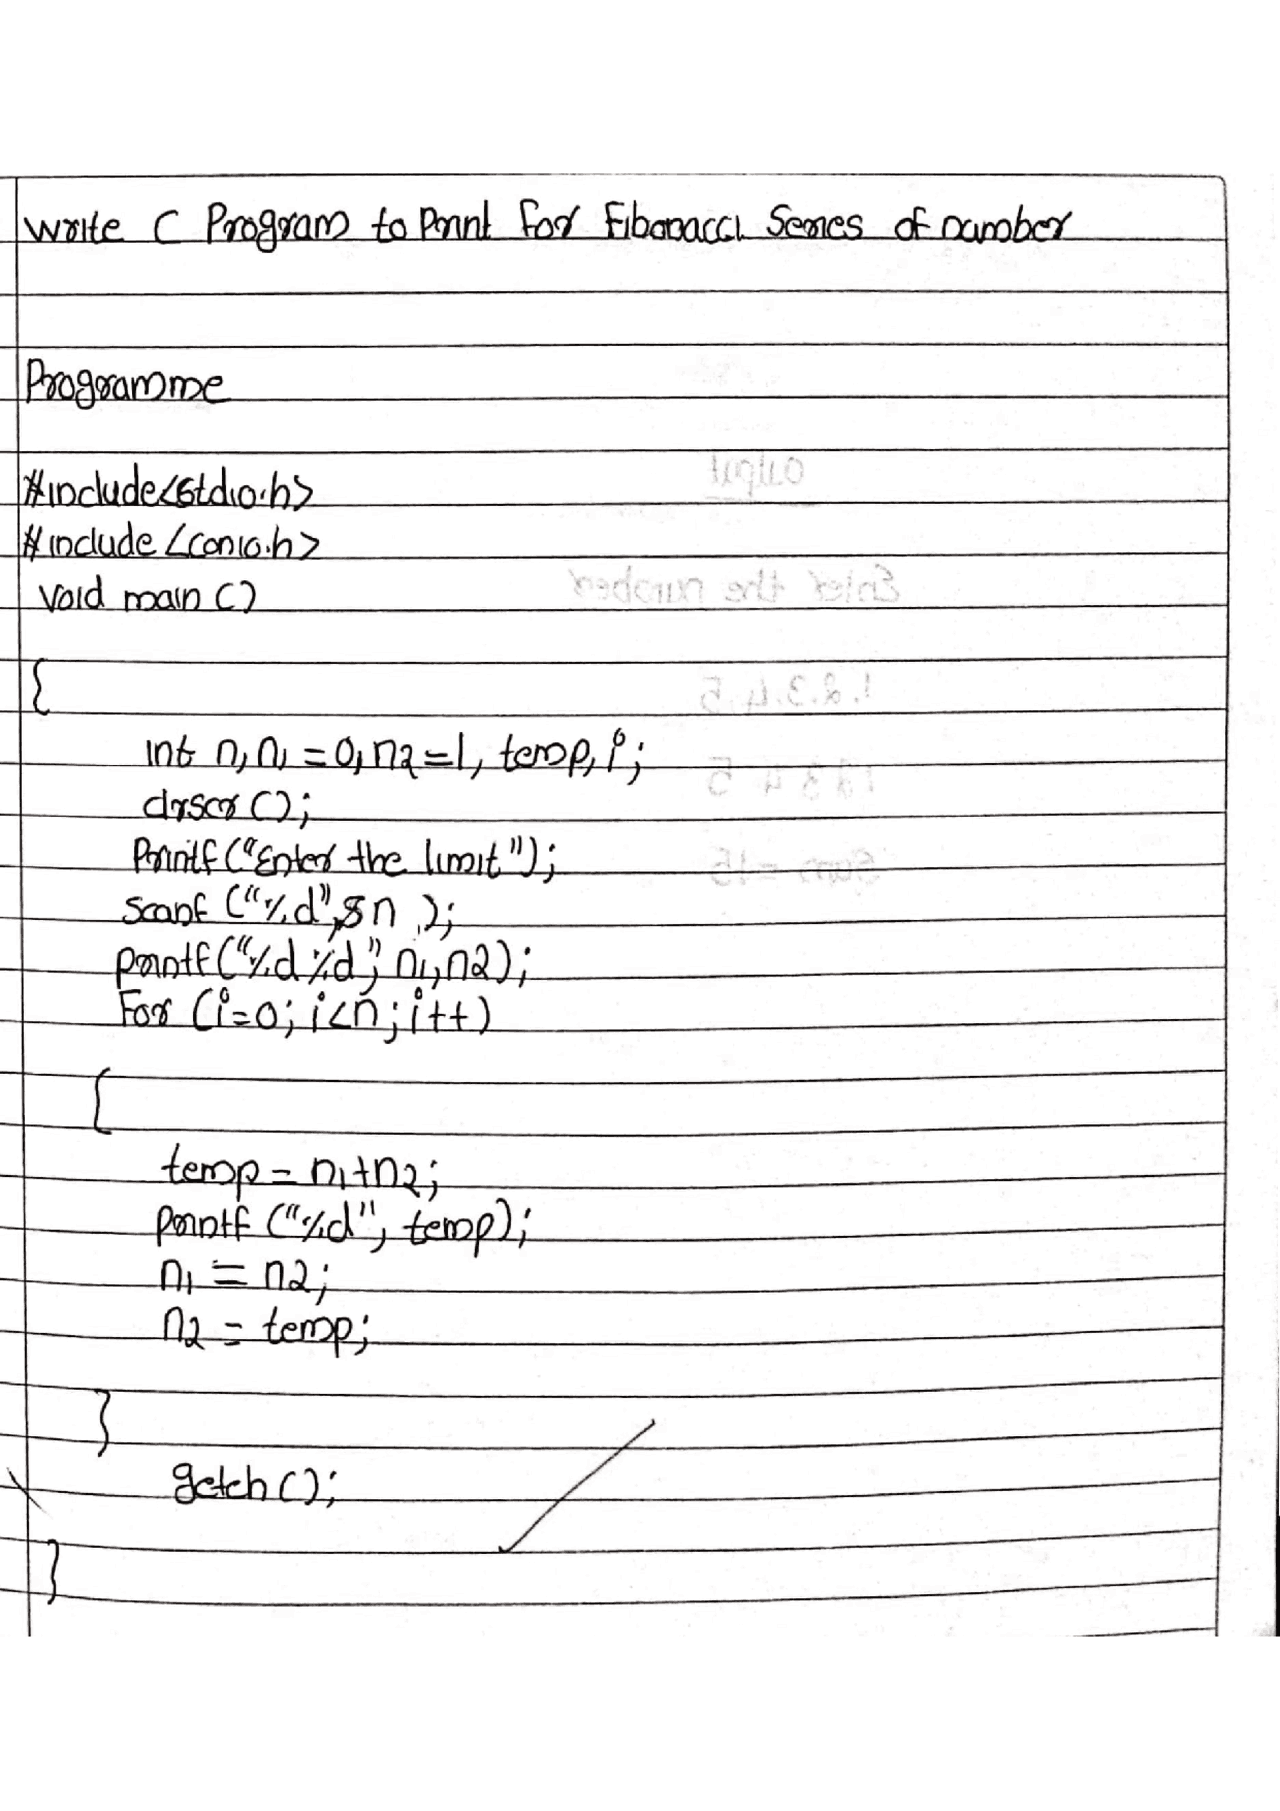 Write C Program to Print for Fibonacci Series of number
Programme
#include<stdio.h>
#include <conio.h>
void main ()
{
int n, n1 = 0, n2 = 1, temp, i;
clrscr ();
Printf ("Enter the limit");
scanf ("%d", &n );
printf ("%d %d", n1, n2);
For (i=0; i<n; i++)
{
temp = n1+n2;
printf ("%d", temp);
n1 = n2;
n2 = temp;
}
getch ();
}
output
Enter the number
1.2.3.4.5
1 2 3 4 5
Sum = 15